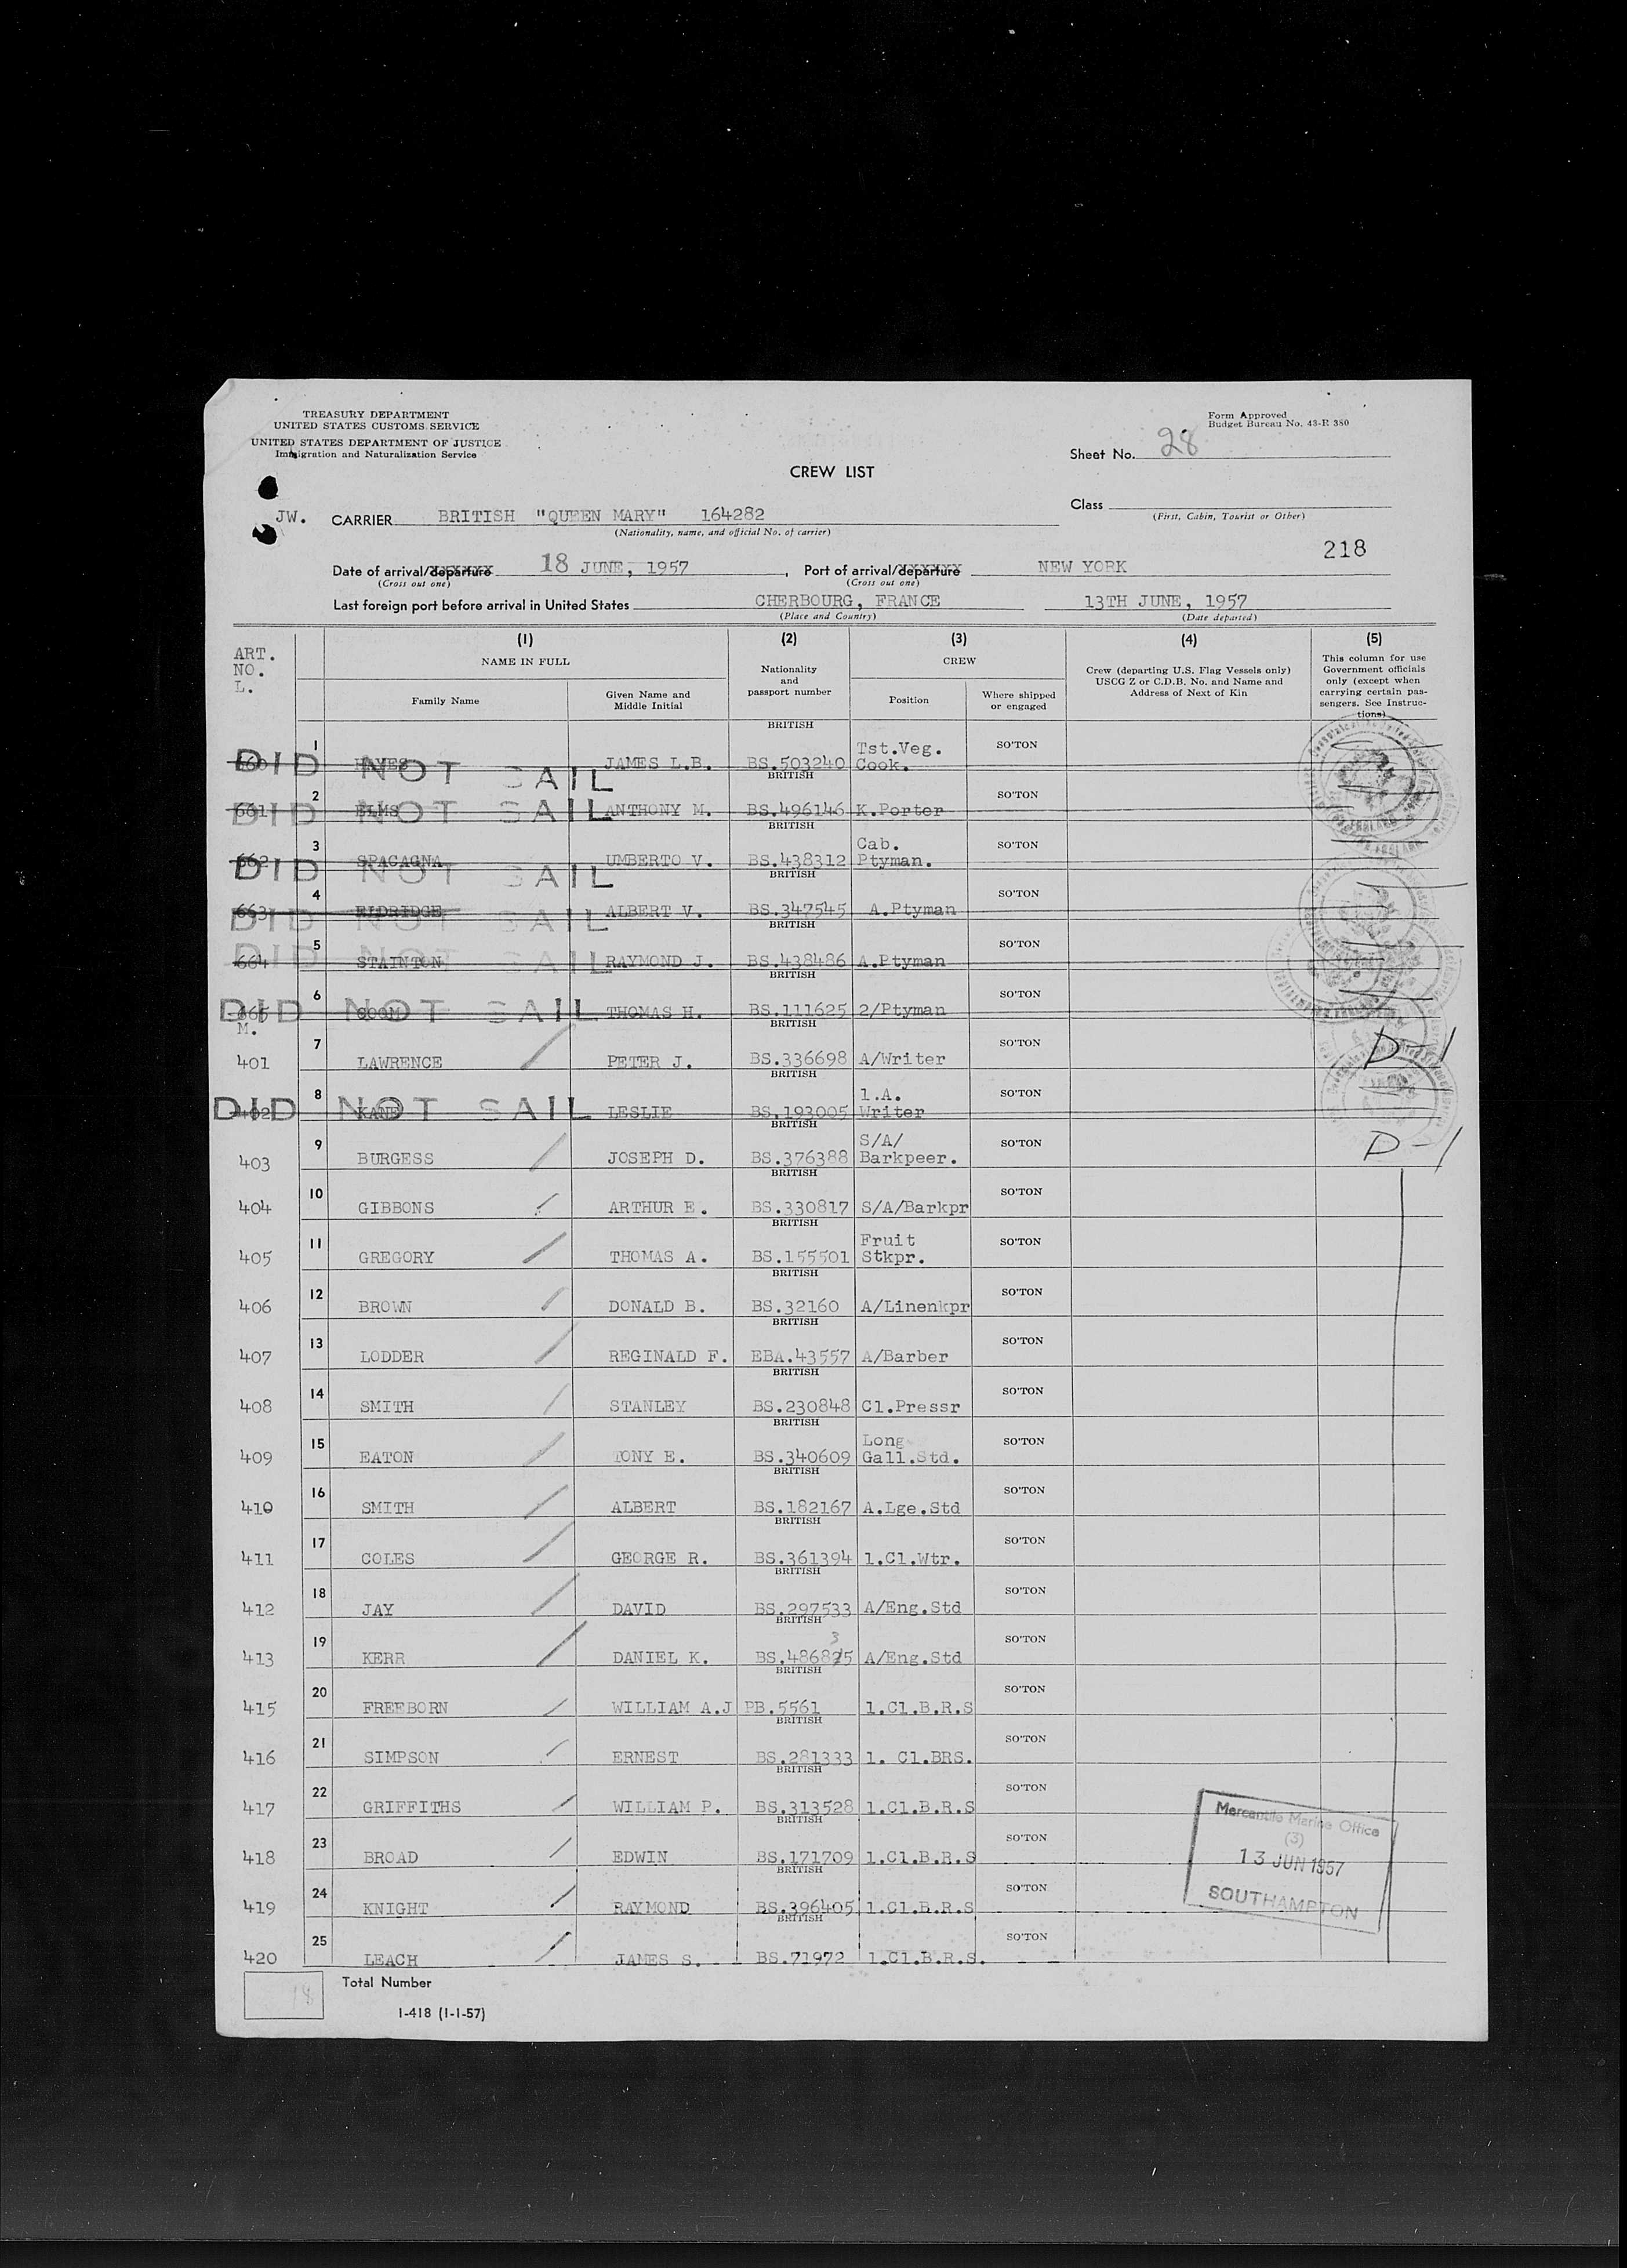 TREASURY DEPARTMENT
UNITED STATES CUSTOMS SERVICE
UNITED STATES DEPARTMENT OF JUSTICE
Immigration and Naturalization Service
Form Approved
Budget Bureau No. 43-R 380
Sheet No. 28
CREW LIST
Class
(First, Cabin, Tourist or Other)
JW. CARRIER BRITISH "QUEEN MARY" 164282
(Nationality, name, and official No. of carrier)
218
Date of arrival/departure 18 JUNE, 1957, Port of arrival/departure NEW YORK
(Cross out one) (Cross out one)
Last foreign port before arrival in United States CHERBOURG, FRANCE 13TH JUNE, 1957
(Place and Country) (Date departed)
ART. NO. L.
(1) (2) (3) (4) (5)
NAME IN FULL
Family Name
Given Name and Middle Initial
Nationality and passport number
CREW
Position
Where shipped or engaged
Crew (departing U.S. Flag Vessels only) USCG Z or C.D.B. No. and Name and Address of Next of Kin
This column for use Government officials only (except when carrying certain passengers. See Instructions)
1 JAMES L.B. BRITISH BS.503240 Tst.Veg. Cook. SO'TON
DID NOT SAIL
661 2 ELMS ANTHONY M. BRITISH BS.496146 K.Porter SO'TON
DID NOT SAIL
662 3 SPACAGNA UMBERTO V. BRITISH BS.438312 Cab. Ptyman. SO'TON
DID NOT SAIL
663 4 ELDRIDGE ALBERT V. BRITISH BS.347545 A.Ptyman SO'TON
DID NOT SAIL
664 5 STAINTON RAYMOND J. BRITISH BS.438486 A.Ptyman SO'TON
DID NOT SAIL
665 6 THOMAS H. BRITISH BS.111625 2/Ptyman SO'TON
DID NOT SAIL
M.
401 7 LAWRENCE PETER J. BRITISH BS.336698 A/Writer SO'TON D-1
402 8 KANE LESLIE BRITISH BS.193005 1.A. Writer SO'TON
DID NOT SAIL
403 9 BURGESS JOSEPH D. BRITISH BS.376388 S/A/ Barkpeer. SO'TON D-1
404 10 GIBBONS ARTHUR E. BRITISH BS.330817 S/A/Barkpr SO'TON
405 11 GREGORY THOMAS A. BRITISH BS.155501 Fruit Stkpr. SO'TON
406 12 BROWN DONALD B. BRITISH BS.32160 A/Linenkpr SO'TON
407 13 LODDER REGINALD F. BRITISH EBA.43557 A/Barber SO'TON
408 14 SMITH STANLEY BRITISH BS.230848 Cl.Pressr SO'TON
409 15 EATON TONY E. BRITISH BS.340609 Long Gall.Std. SO'TON
410 16 SMITH ALBERT BRITISH BS.182167 A.Lge.Std SO'TON
411 17 COLES GEORGE R. BRITISH BS.361394 1.Cl.Wtr. SO'TON
412 18 JAY DAVID BRITISH BS.297533 A/Eng.Std SO'TON
413 19 KERR DANIEL K. BRITISH BS.486835 A/Eng.Std SO'TON
415 20 FREEBORN WILLIAM A.J BRITISH PB.5561 1.Cl.B.R.S SO'TON
416 21 SIMPSON ERNEST BRITISH BS.281333 1. Cl.BRS. SO'TON
417 22 GRIFFITHS WILLIAM P. BRITISH BS.313528 1.Cl.B.R.S SO'TON
418 23 BROAD EDWIN BRITISH BS.171709 1.Cl.B.R.S SO'TON
419 24 KNIGHT RAYMOND BRITISH BS.396405 1.Cl.B.R.S SO'TON
420 25 LEACH JAMES S. BRITISH BS.71972 1.Cl.B.R.S. SO'TON
Mercantile Marine Office
(3)
13 JUN 1957
SOUTHAMPTON
18 Total Number
I-418 (1-1-57)